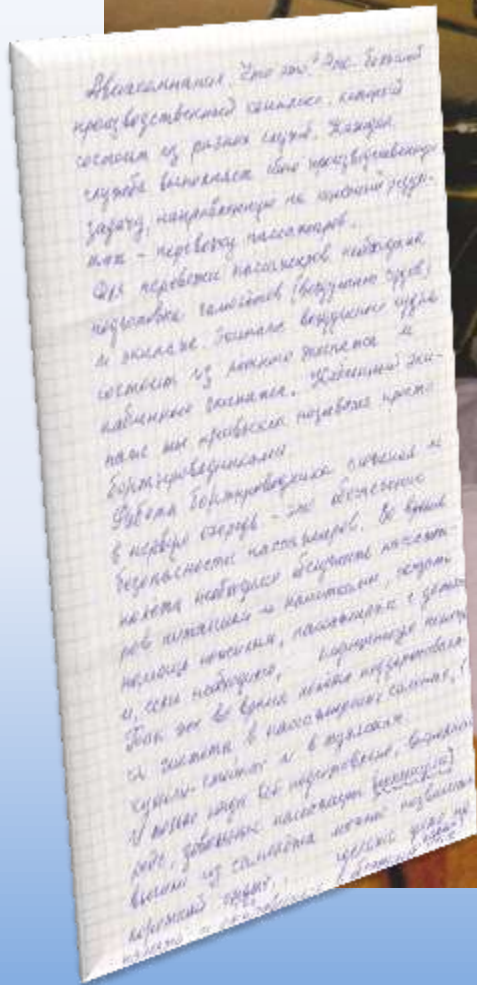 Авиакомпания. Что это? Это большой
производственный комплекс, который
состоит из разных служб. Каждая
служба выполняет свою производственную
задачу, направленную на конечный резуль-
тат - перевозку пассажиров.
Для перевозки пассажиров необходима
подготовка самолётов (воздушных судов)
и экипажа. Экипаж воздушного судна
состоит из лётного экипажа и
кабинного экипажа. Кабинный эки-
паж мы привыкли называть просто
бортпроводниками.
Работа бортпроводника сложная и
в первую очередь - это обеспечение
безопасности пассажиров. Во время
полёта необходимо обеспечить пассажи-
ров питанием и напитками, оказать
помощь пожилым, пассажирам с детьми
и, если необходимо, медицинскую помощь
Так же во время полёта поддерживать
ся чистота в пассажирских салонах, в
кухнях и в туалетах.
И только когда всё подготовлено,
довольные пассажиры
вышли из самолёта можно